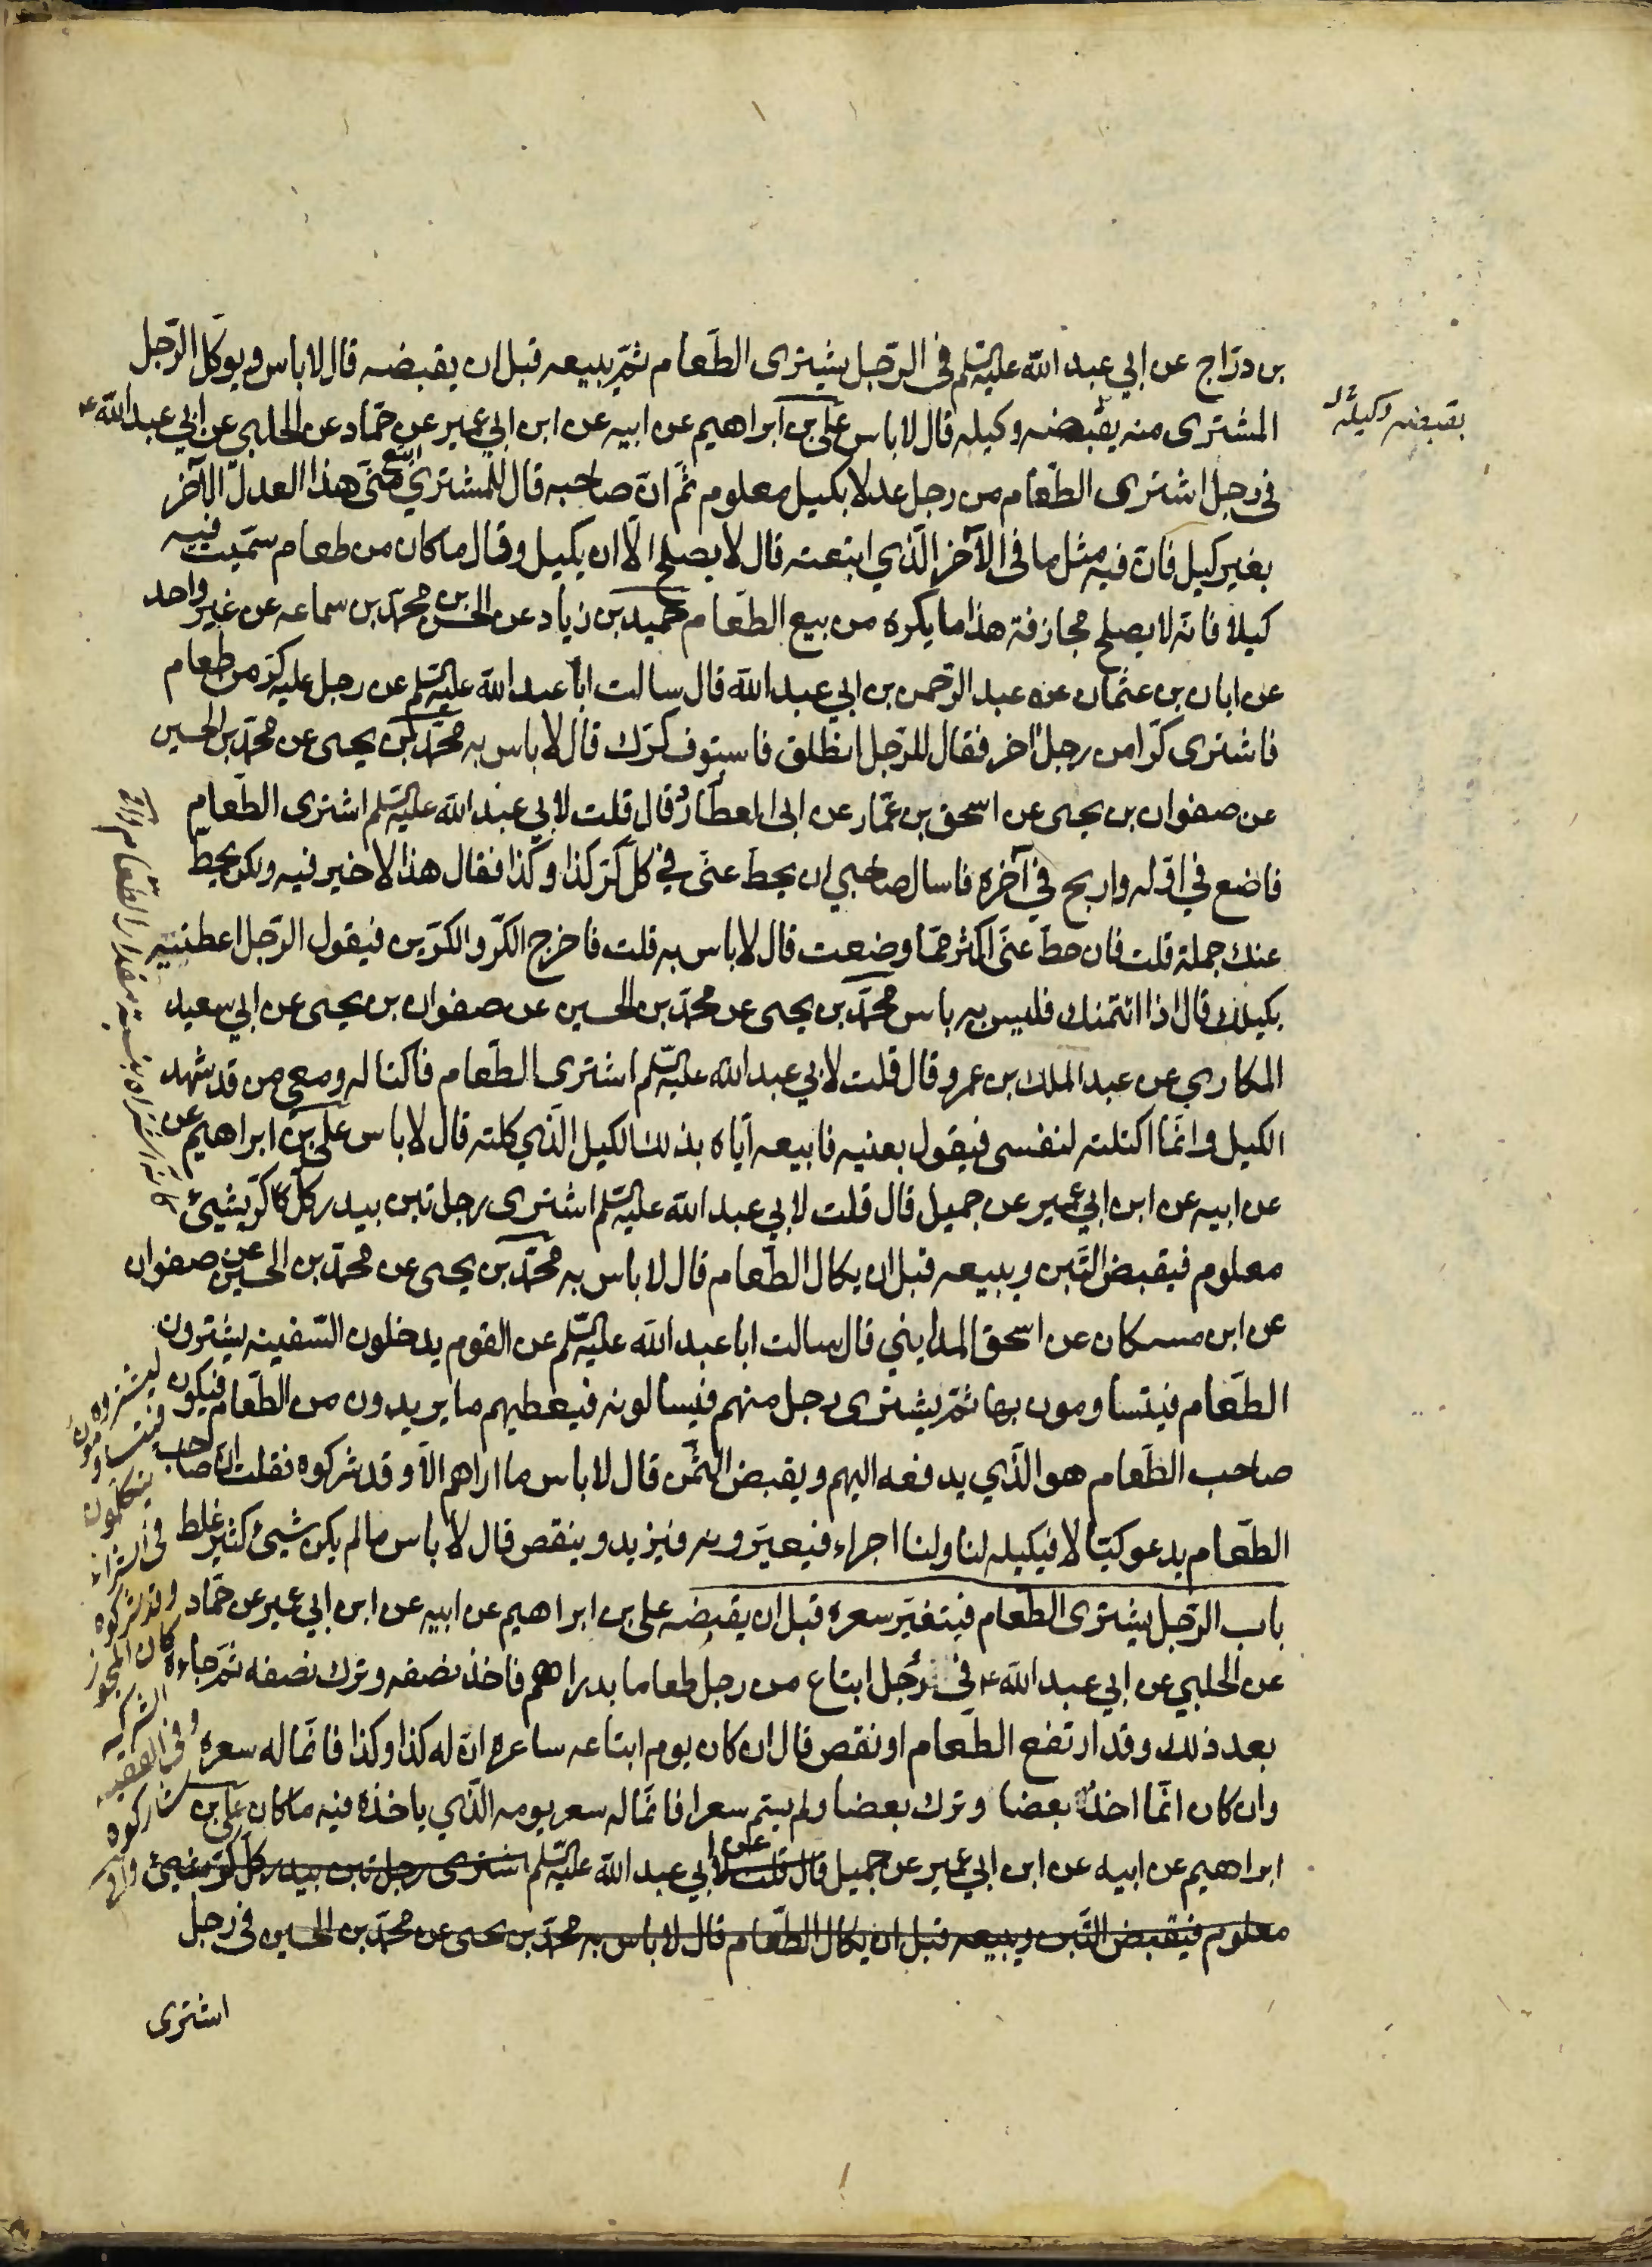 بن درّاج عن ابي عبد الله عليه السّلم في الرّجل يشترى الطّعام ثمّ يبيعه قبل ان يقبضه قال لا باس و يوكل الرّجل
المشترى منه يقبضه وكيله قال لا باس على بن ابراهيم عن ابيه عن ابن ابي عمير عن حمّاد عن الحلبي عن ابي عبد الله ع
بقبضه وكيله
في رجل اشترى الطّعام من رجل عدلا بكيل معلوم ثمّ انّ صاحبه قال للمشتري ابتع منّى هذا العدل الآخر
بغير كيل فانّ فيه مثل ما فى الآخر الّذي ابتعته قال لا يصلح الّا ان يكيل وقال ما كان من طعام سمّيت فيه
كيلا فانّه لا يصلح مجازفة هذا ما يكره من بيع الطّعام حميد بن زياد عن الحسن بن محمّد بن سماعه عن غير واحد
عن ابان بن عثمان عن عبد الرّحمن بن ابي عبد الله قال سالت ابا عبد الله عليه السّلم عن رجل عليه كرّ من طعام
فاشترى كرّا من رجل اخر فقال للرّجل انطلق فاستوف كرّك قال لا باس به محمّد بن يحيى عن محمّد بن الحسين
عن صفوان بن يحيى عن اسحق بن عمّار عن ابى العطارد قال قلت لابي عبد الله عليه السّلم اشترى الطّعام
فاضع في اوّله واربح في آخره فاسال صاحبي ان يحطّ عنّى في كلّ كرّ كذا وكذا فقال هذا لا خير فيه ولكن يحطّ
عنك جملة قلت فان حطّ عنّى اكثر ممّا وضعت قال لا باس به قلت فاخرج الكرّ والكرّين فيقول الرّجل اعطنيه
بكيلك قال اذا ائتمنك فليس به باس محمّد بن يحيى عن محمّد بن الحسين عن صفوان بن يحيى عن ابي سعيد
المكاري عن عبد الملك بن عمرو قال قلت لابي عبد الله عليه السّلم اشترى الطّعام فاكتاله ومعي من قد شهد
الكيل وانّما اكتلته لنفسى فيقول بعنيه فابيعه ايّاه بذلك الكيل الّذي كلته قال لا باس على بن ابراهيم عن
عن ابيه عن ابن ابي عمير عن جميل قال قلت لابي عبد الله عليه السّلم اشترى رجل تبن بيدر كلّ كرّ بشيئ
معلوم فيقبض التّبن ويبيعه قبل ان يكال الطّعام قال لا باس به محمّد بن يحيى عن محمّد بن الحسين عن صفوان
عن ابن مسكان عن اسحق المدايني قال سالت ابا عبد الله عليه السّلم عن القوم يدخلون السّفينه يشترون
الطّعام فيتساومون بها ثمّ يشترى رجل منهم فيسالونه فيعطيهم ما يريدون من الطّعام فيكون
صاحب الطّعام هو الّذي يدفعه اليهم ويقبض الثّمن قال لا باس ما اراهم الّا وقد شركوه فقلت انّ صاحب
الطّعام يدعو كيّالا فيكيله لنا ولنا اجراء فيعيّرونه فيزيد وينقص قال لا باس ما لم يكن شيئ كثير غلط
باب الرّجل يشترى الطّعام فيتغيّر سعره قبل ان يقبضه على بن ابراهيم عن ابيه عن ابن ابي عمير عن حمّاد
عن الحلبي عن ابي عبد الله ع في رجل ابتاع من رجل طعاما بدراهم فاخذ نصفه وترك نصفه ثمّ جاءه
بعد ذلك وقد ارتفع الطّعام او نقص قال ان كان يوم ابتاعه ساعره انّ له كذا وكذا فانّما له سعره
وان كان انّما اخذ بعضا وترك بعضا ولم يسمّ سعرا فانّما له سعر يومه الّذي ياخذه فيه ما كان على بن
ابراهيم عن ابيه عن ابن ابي عمير عن جميل قال قلت لابي عبد الله عليه السّلم اشترى رجل تبن بيدر كلّ كرّ بشيئ
معلوم فيقبض التّبن ويبيعه قبل ان يكال الطّعام قال لا باس به محمّد بن يحيى عن محمّد بن الحسين في رجل
اشترى
ليشتروه
فيتساومون
يتكلمون
في الشراء
وقد شركوه
الشركه
وفي الفقيه
شاركوه